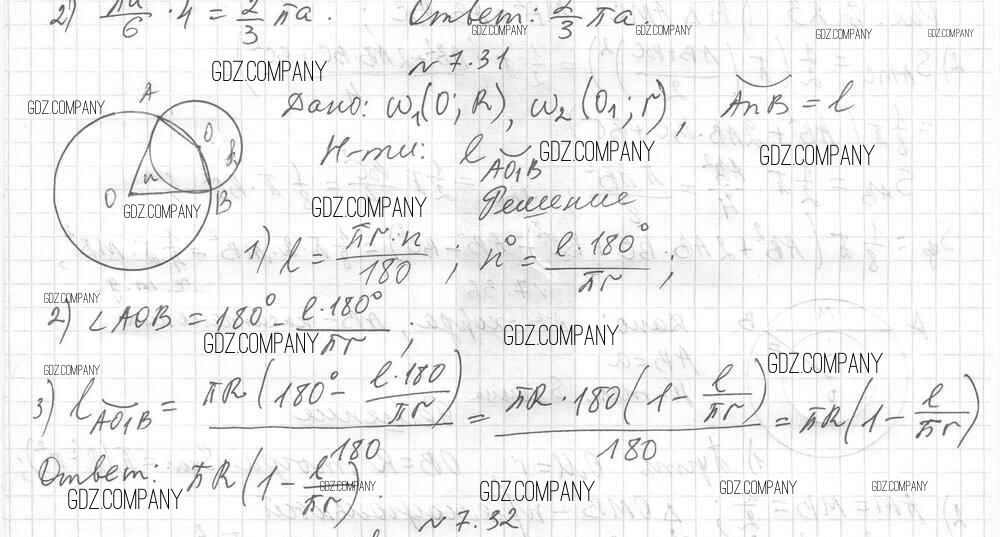 2) πa/6 · 4 = 2/3 πa. Ответ: 2/3 πa.
GDZ.COMPANY GDZ.COMPANY GDZ.COMPANY GDZ.COMPANY
N 7.31
GDZ.COMPANY
GDZ.COMPANY
A
Дано: ω₁(O; R), ω₂(O₁; r), A͝nB = l
O
Н-ти: l A͝O₁B
GDZ.COMPANY GDZ.COMPANY
n
O B
GDZ.COMPANY GDZ.COMPANY
Решение
1) l = πr·n/180 ; n° = l·180°/πr ;
GDZ.COMPANY
2) ∠AOB = 180° - l·180°/πr ;
GDZ.COMPANY GDZ.COMPANY GDZ.COMPANY
GDZ.COMPANY
3) l A͝O₁B = πR(180° - l·180/πr)/180 = πR·180(1 - l/πr)/180 = πR(1 - l/πr)
Ответ: πR(1 - l/πr).
GDZ.COMPANY GDZ.COMPANY GDZ.COMPANY GDZ.COMPANY GDZ.COMPANY
N 7.32